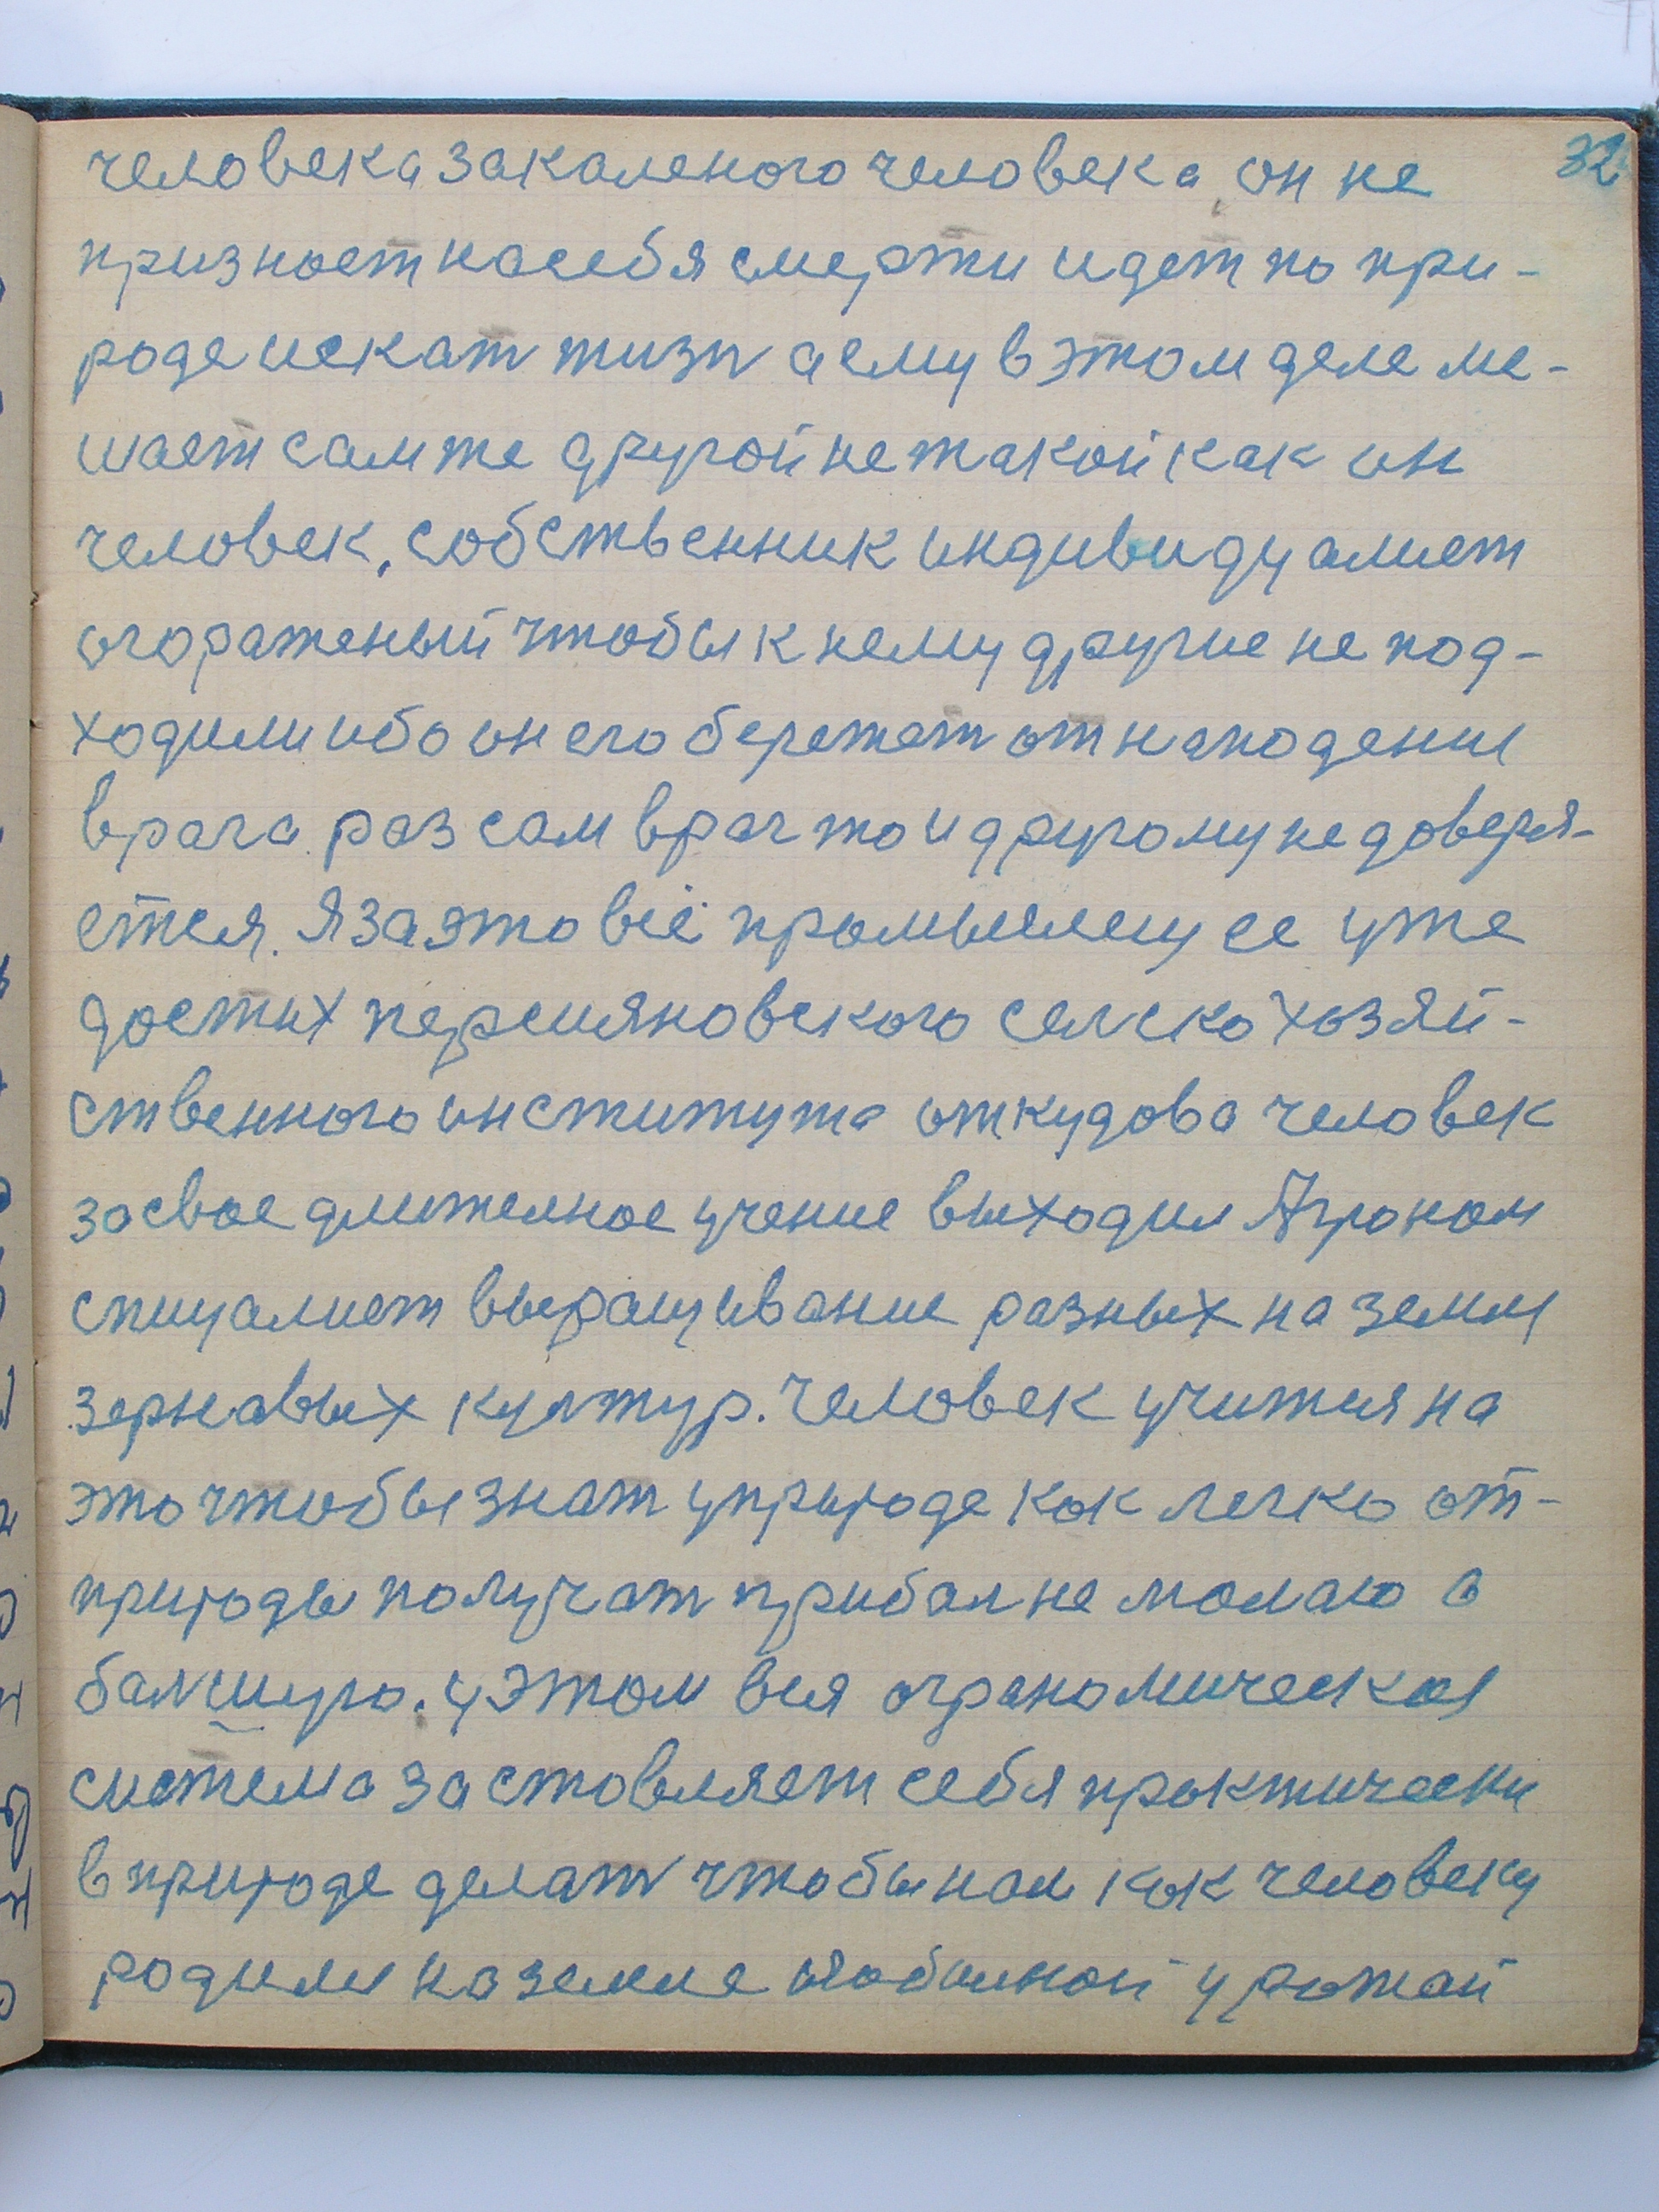 32
человека закаленого человека он не
признает на себя смерти идет по при-
роде искат жизн а ему в этом деле ме-
шает сам же другой не такой как он
человек, собственник индивидуалист
огораженый чтобы к нему другие не под-
ходили ибо он его бережет от нападения
врага раз сам враг то и другому не доверя-
ется. Я за это всё промыслещу се уже
достих персияновского селскохозяй-
ственного института откудова человек
за свое длителное учение выходил Агроном
спицалист выращивание разных на земли
зерновых културр. Человек учится на
это чтобы знат у природе как легко от-
природы получат прибал не малаю а
балшую. у этом вся аграномическая
система заставляет себя практически
в природе делат чтобы нам как человеку
родили на земле обилной урожай